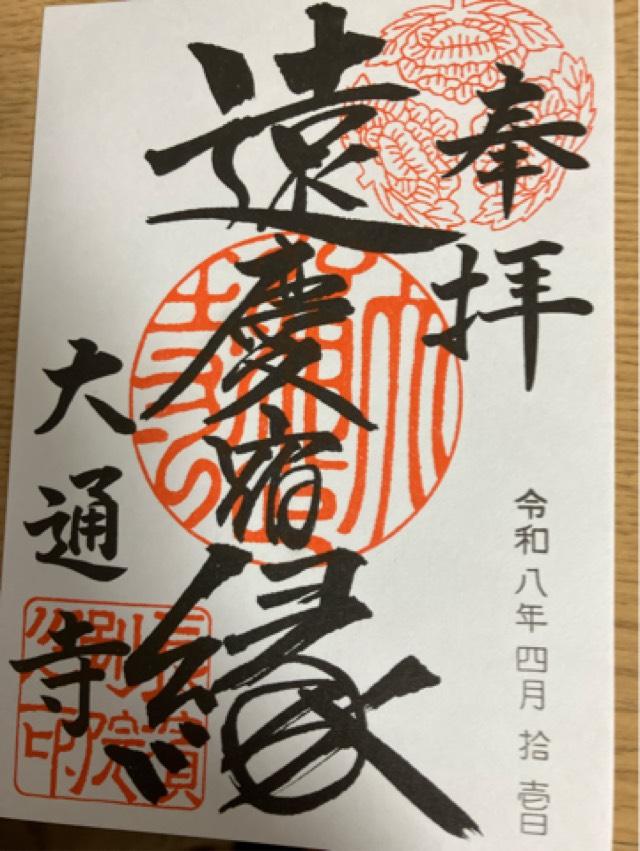 奉拝
令和八年四月拾壱日
遠慶宿縁
大通寺
長濱
別院